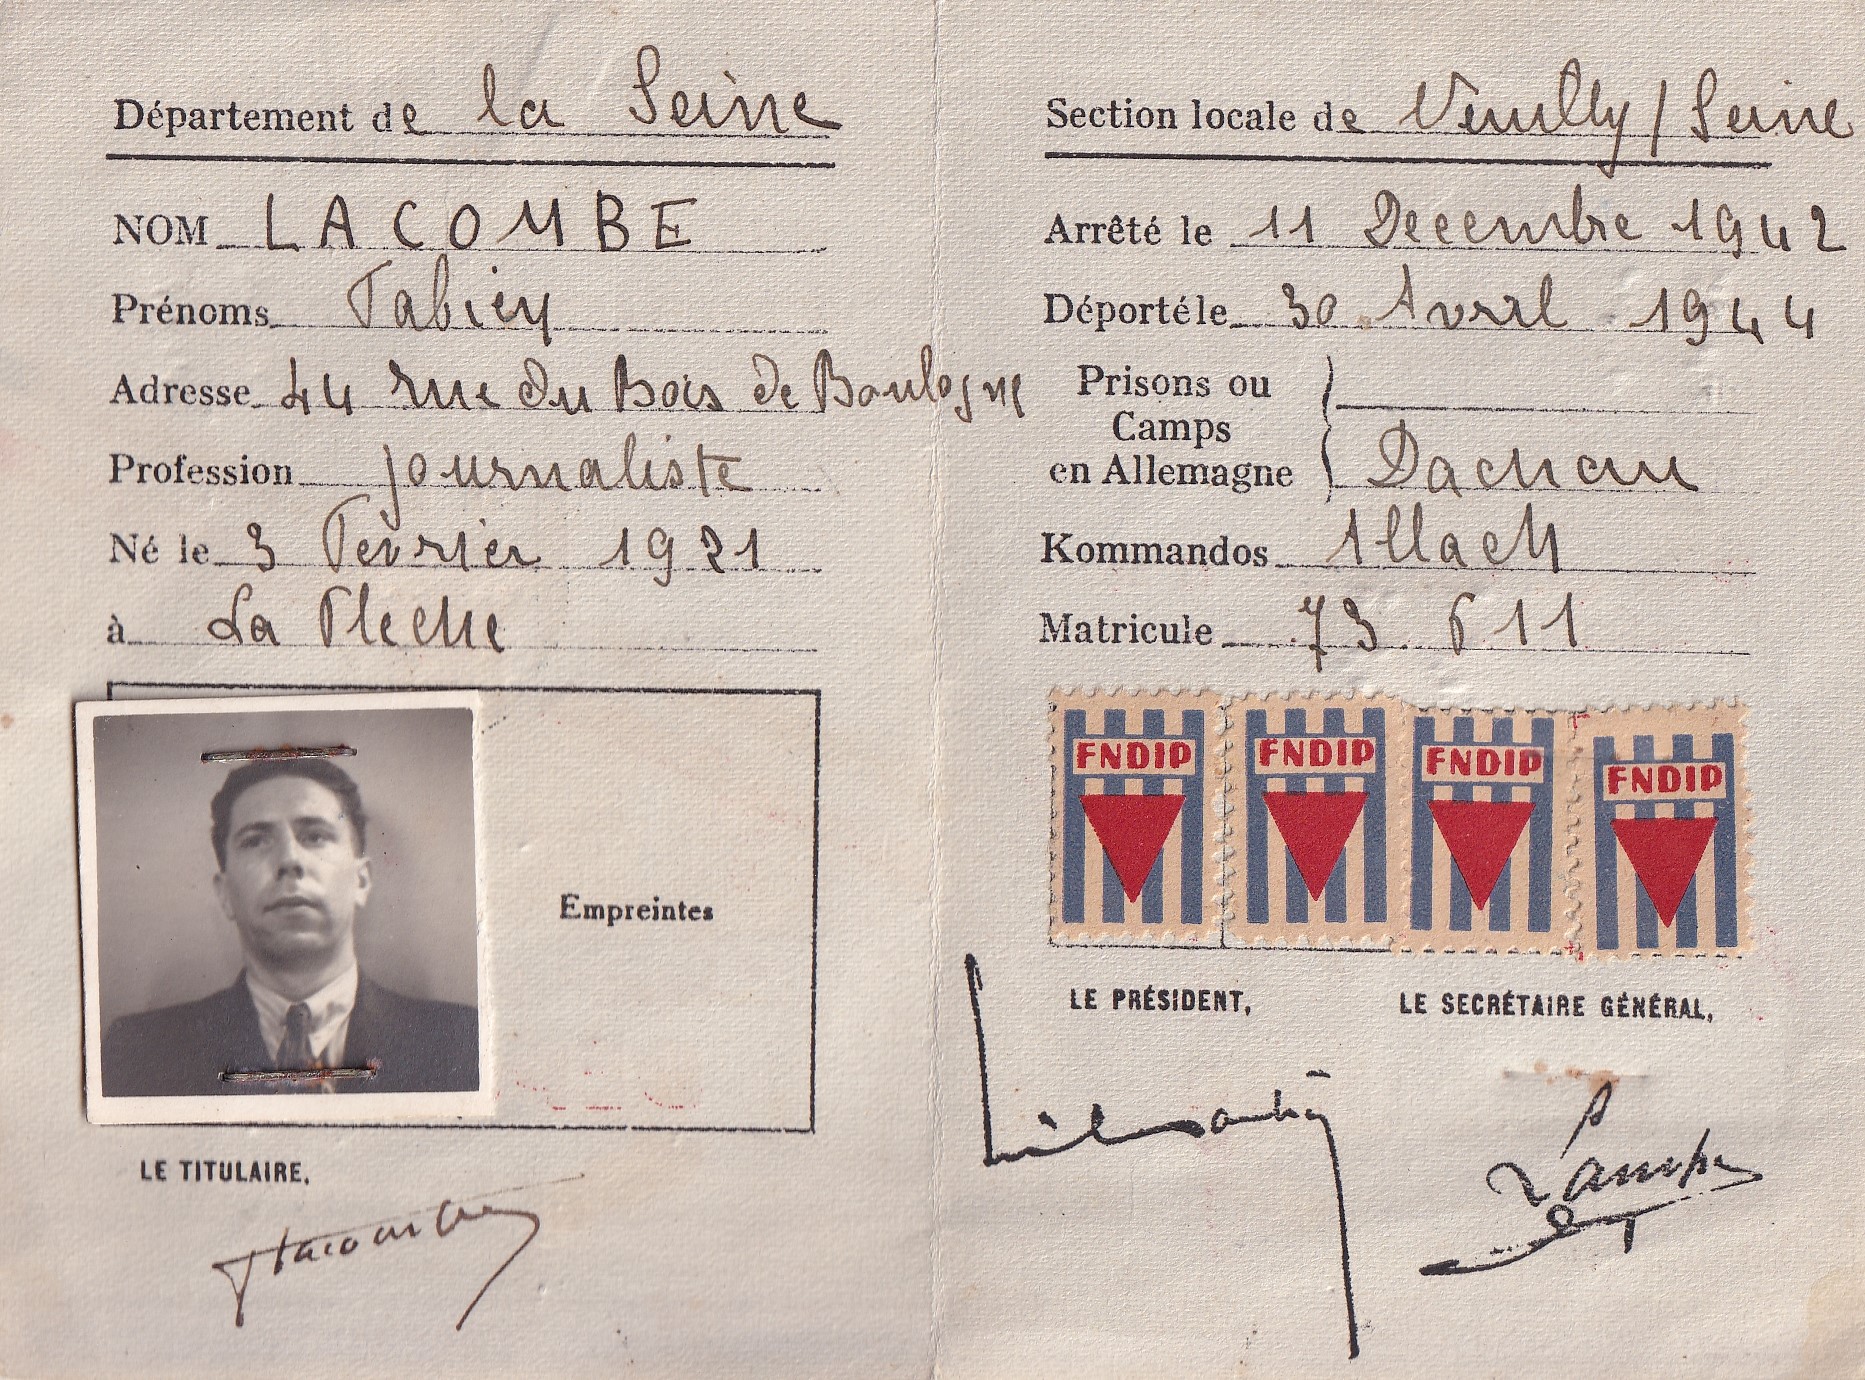 Département de la Seine
NOM LACOMBE
Prénoms Fabien
Adresse 44 rue du Bois de Boulogne
Profession journaliste
Né le 3 Fevrier 1921
à La Fleche
Empreintes
LE TITULAIRE,
Lacombe
Section locale de Neuilly / Seine
Arrêté le 11 Decembre 1942
Déporté le 30 Avril 1944
Prisons ou
Camps
en Allemagne Dachau
Kommandos Allach
Matricule 73.611
FNDIP FNDIP FNDIP FNDIP
LE PRÉSIDENT, LE SECRÉTAIRE GÉNÉRAL,